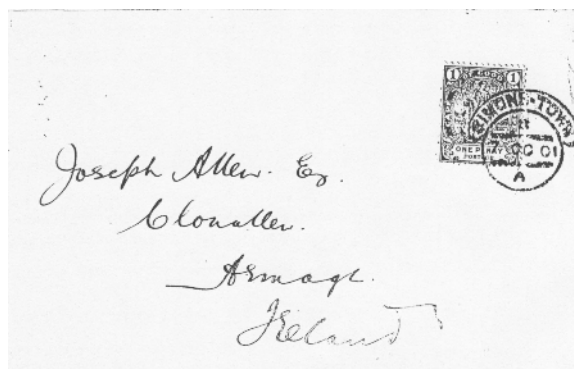 1 1
ONE PENNY
SIMONS-TOWN
7 OC 01
A
Joseph Allen. Eq.
Clonallen.
Armagh.
Ireland